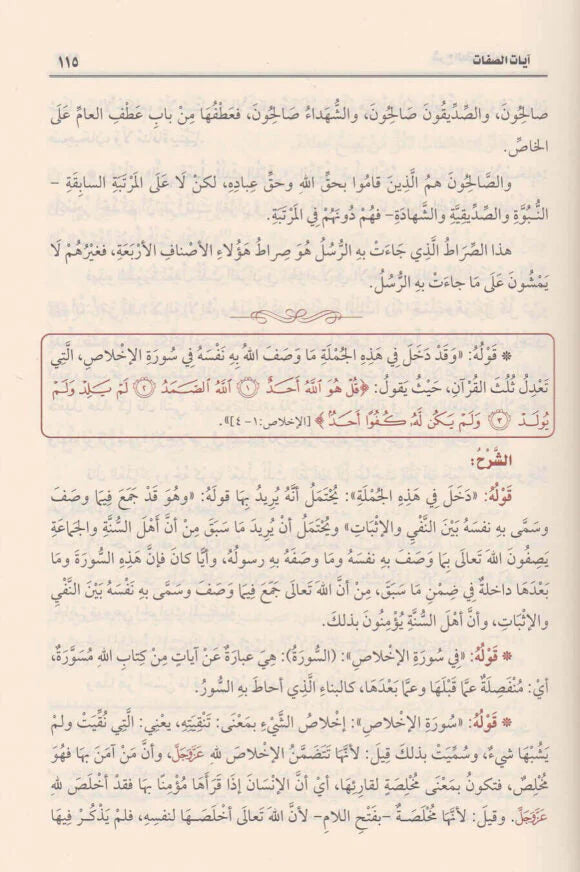 آيات الصفات ١١٥
صالِحُونَ، والصِّدِّيقُونَ صَالِحُونَ، والشُّهَدَاءُ صَالِحُونَ، فَعَطْفُهَا مِنْ بابِ عَطْفِ العامِّ عَلَى
الخاصِّ.
والصَّالِحُونَ همُ الَّذِينَ قامُوا بحقِّ اللهِ وحقِّ عبادِهِ، لكنْ لَا عَلَى المَرْتَبَةِ السابقَةِ -
النُّبُوَّةِ والصِّدِّيقِيَّةِ والشَّهادَةِ- فهُمْ دُونَهُمْ فِي المَرْتَبَةِ.
هذا الصِّرَاطُ الَّذِي جَاءَتْ بِهِ الرُّسُلُ هُوَ صِراطُ هَؤُلَاءِ الأَصْنافِ الأَرْبَعَةِ، فغَيْرُهُمْ لَا
يَمْشُونَ عَلَى مَا جاءَتْ بِهِ الرُّسُلُ.
* قَوْلُهُ: «وَقَدْ دَخَلَ فِي هَذِهِ الجُمْلَةِ مَا وَصَفَ اللهُ بِهِ نَفْسَهُ فِي سُورَةِ الإِخْلَاصِ، الَّتِي
تَعْدِلُ ثُلُثَ القُرْآنِ، حَيْثُ يقولُ: ﴿قُلْ هُوَ ٱللَّهُ أَحَدٌ ۝١ ٱللَّهُ ٱلصَّمَدُ ۝٢ لَمْ يَلِدْ وَلَمْ
يُولَدْ ۝٣ وَلَمْ يَكُن لَّهُۥ كُفُوًا أَحَدٌۢ﴾ [الإخلاص:١-٤]».
الشَّرْحُ:
قَوْلُهُ: «دَخَلَ فِي هَذِهِ الجُمْلَةِ»: يُحْتَمَلُ أنَّهُ يُرِيدُ بِهَا قولَهُ: «وهُوَ قَدْ جَمَعَ فِيمَا وَصَفَ
وسَمَّى بِهِ نفسَهُ بَيْنَ النَّفْيِ والإِثْبَاتِ» ويُحْتَمَلُ أنْ يُرِيدَ مَا سَبَقَ مِنْ أنَّ أهْلَ السُّنَّةِ والجَماعَةِ
يَصِفُونَ اللهَ تَعَالَى بِمَا وَصَفَ بِهِ نفسَهُ ومَا وصَفَهُ بِهِ رسولُهُ، وأيًّا كانَ فإِنَّ هذِهِ السُّورَةَ ومَا
بَعْدَهَا داخلةٌ فِي ضِمْنِ مَا سَبَقَ، مِنْ أنَّ اللهَ تَعَالَى جَمَعَ فِيمَا وَصَفَ وسَمَّى بِهِ نَفْسَهُ بَيْنَ النَّفْيِ
والإِثْباتِ، وأنَّ أهْلَ السُّنَّةِ يُؤْمِنُونَ بذلكَ.
* قَوْلُهُ: «فِي سُورَةِ الإِخْلَاصِ»: (السُّورَةُ): هِيَ عبارَةٌ عَنْ آياتٍ مِنْ كِتابِ اللهِ مُسَوَّرَةٌ،
أيْ: مُنْفَصِلَةٌ عمَّا قَبْلَهَا وعمَّا بَعْدَهَا، كالبناءِ الَّذِي أحاطَ بِهِ السُّورُ.
* قَوْلُهُ: «سُورَةِ الإِخْلَاصِ»: إخلاصُ الشَّيْءِ بمَعْنَى: تَنْقِيَتِهِ، يعْنِي: الَّتِي نُقِّيَتْ ولَمْ
يَشُبْهَا شيءٌ، وسُمِّيَتْ بذلكَ قِيلَ: لأنَّهَا تَتَضَمَّنُ الإِخْلاصَ للهِ عَزَّوَجَلَّ، وأنَّ مَنْ آمَنَ بِهَا فهُوَ
مُخْلِصٌ، فتكونُ بمَعْنَى مُخْلِصَةٍ لقارئِهَا، أيْ أنَّ الإِنْسَانَ إذَا قَرَأَهَا مُؤْمِنًا بِهَا فقدْ أخْلَصَ للهِ
عَزَّوَجَلَّ. وقيلَ: لأنَّهَا مُخْلَصَةٌ -بفَتْحِ اللامِ- لأنَّ اللهَ تَعَالَى أخْلَصَهَا لنفسِهِ، فلَمْ يَذْكُرْ فِيهَا